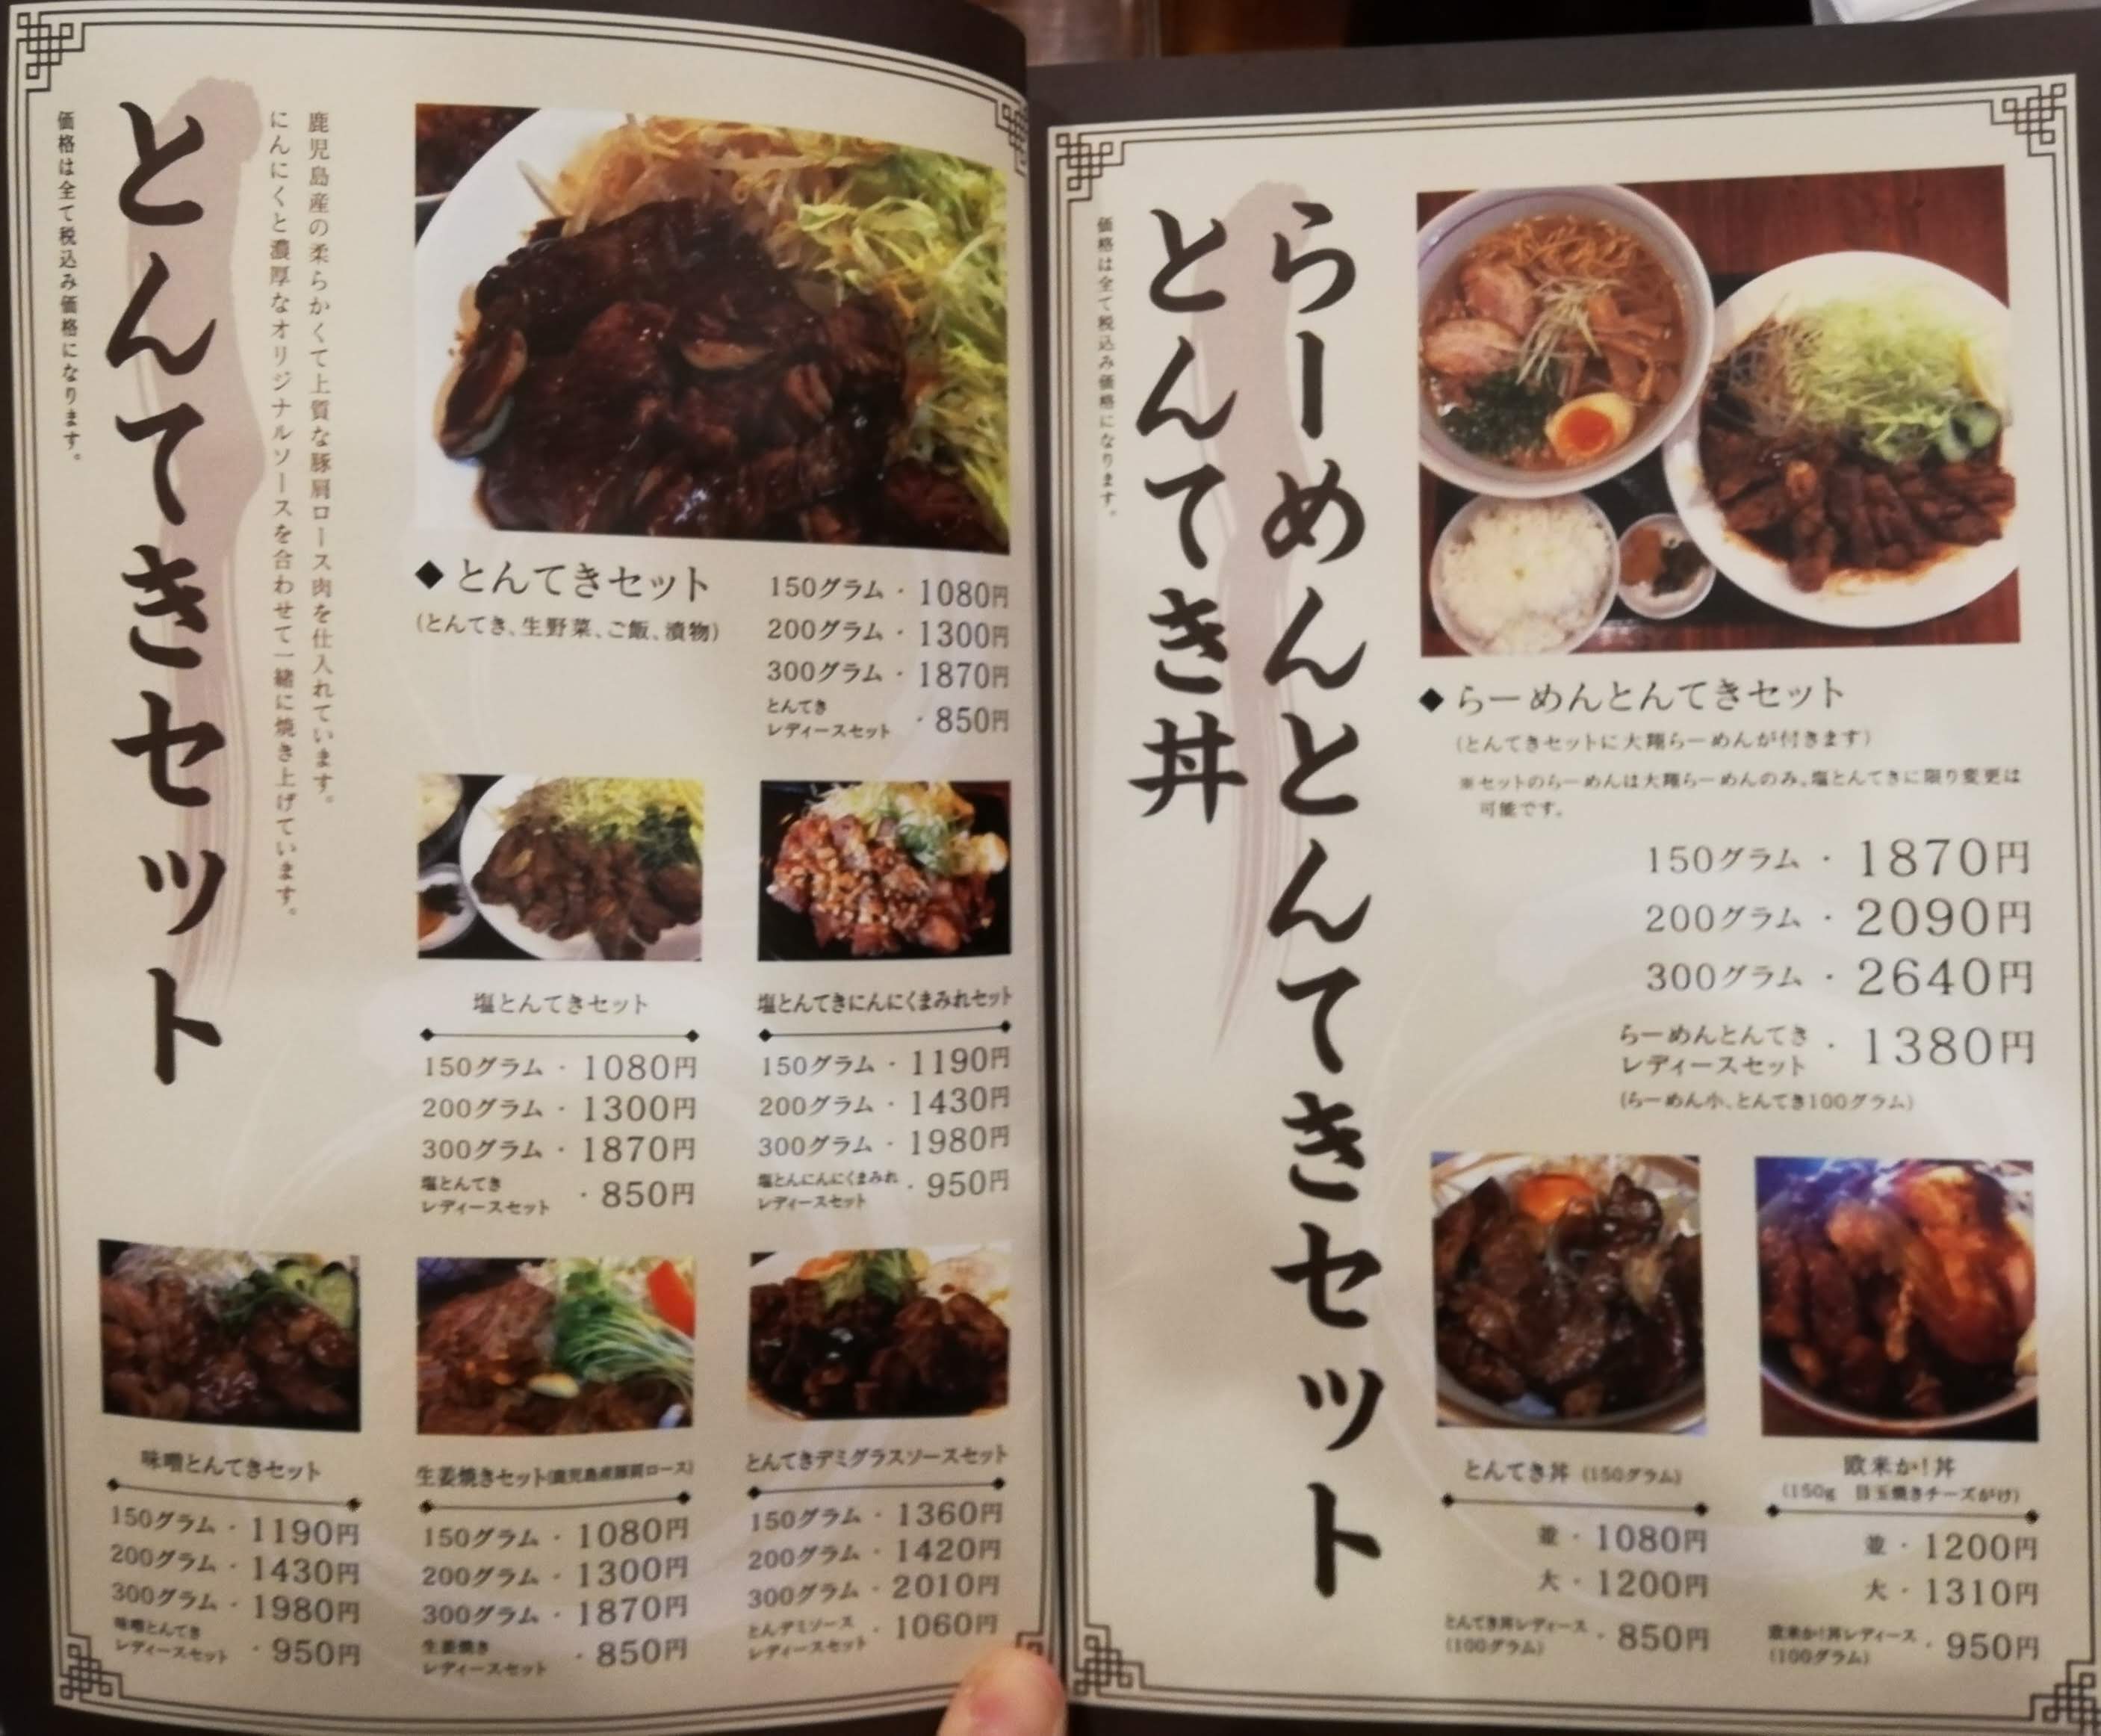 とんてきセット
鹿児島産の柔らかくて上質な豚肩ロース肉を仕入れています。
にんにくと濃厚なオリジナルソースを合わせて一緒に焼き上げています。
価格は全て税込み価格になります。
◆とんてきセット
(とんてき、生野菜、ご飯、漬物)
150グラム・1080円
200グラム・1300円
300グラム・1870円
とんてき
レディースセット・850円
塩とんてきセット
150グラム・1080円
200グラム・1300円
300グラム・1870円
塩とんてき
レディースセット・850円
塩とんてきにんにくまみれセット
150グラム・1190円
200グラム・1430円
300グラム・1980円
塩とんにんにくまみれ
レディースセット・950円
味噌とんてきセット
150グラム・1190円
200グラム・1430円
300グラム・1980円
味噌とんてき
レディースセット・950円
生姜焼きセット(鹿児島産豚肩ロース)
150グラム・1080円
200グラム・1300円
300グラム・1870円
生姜焼き
レディースセット・850円
とんてきデミグラスソースセット
150グラム・1360円
200グラム・1420円
300グラム・2010円
とんデミソース
レディースセット・1060円
らーめんとんてきセット
とんてき丼
価格は全て税込み価格になります。
◆らーめんとんてきセット
(とんてきセットに大翔らーめんが付きます)
※セットのらーめんは大翔らーめんのみ、塩とんてきに限り変更は
可能です。
150グラム・1870円
200グラム・2090円
300グラム・2640円
らーめんとんてき
レディースセット・1380円
(らーめん小、とんてき100グラム)
とんてき丼 (150グラム)
並・1080円
大・1200円
とんてき丼レディース
(100グラム)・850円
欧米か!丼
(150g 目玉焼きチーズがけ)
並・1200円
大・1310円
欧米か!丼レディース
(100グラム)・950円